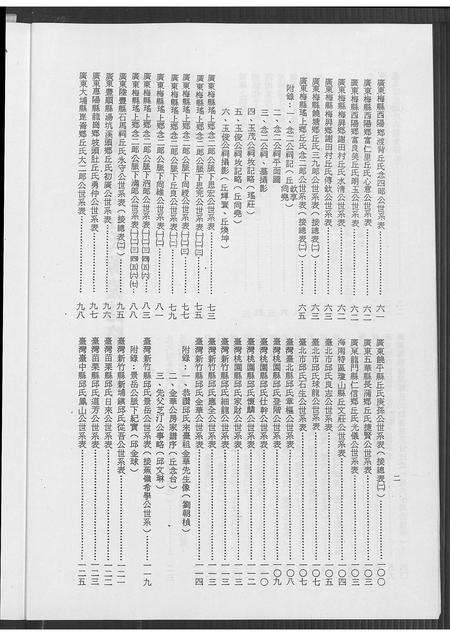 二
廣東梅縣西陽鄉渡背丘氏念四郎公世系表 六一
廣東梅縣西陽鄉富仁里丘氏心意公世系表 六一
廣東梅縣西陽鄉富良美丘氏明玉公世系表 六二
廣東梅縣梅興鄉謝田村丘氏水清公世系表 六二
廣東梅縣梅興鄉謝田村丘氏傳欽公世系表 六三
廣東梅縣饒塘鄉丘氏三九郎公世系表(接總表㈡) 六三
廣東梅縣瑤上鄉丘氏念二郎公世系表(接總表㈡) 六五
附錄:一、念二公祠記(丘 尚堯)
二、念二公祠平面圖
三、念二公祠、墓攝影
四、玉茂公祠枚記略(瑤莊)
五、玉茂公祠枚記略(丘尚堯)
六、玉俊公祠攝影(丘煇寰、丘煥坤)
廣東梅縣瑤上鄉念二郎公脈下思宏公世系表 七三
廣東梅縣瑤上鄉念二郎公脈下思宏公世系表㈠㈡ 七五
廣東梅縣瑤上鄉念二郎公脈下尚稜公世系表㈠㈡ 七七
廣東梅縣瑤上鄉念二郎公脈下丘良公世系表㈠㈡ 七九
廣東梅縣瑤上鄉念二郎公脈下尚穗公世系表㈠㈡ 八一
廣東梅縣瑤上鄉念二郎公脈下洒郎公世系表㈠㈡㈢㈣㈤㈥ 八三
廣東梅縣瑤上鄉念二郎公脈下鴻郎公世系表㈠㈡㈢㈣㈤㈥㈦ 八八
廣東陸豐縣石馬祠丘氏永守公世系表(接總表㈡) 九五
廣東豐順縣湯坑溪頭鄉丘氏初廣公世系表 九六
廣東惠陽縣龍崗鄉坡頭肚丘氏勇仲公世系表 九七
廣東大埔縣崑崙鄉丘氏大二郎公世系表(接總表㈡) 九八
廣東饒平縣丘氏東孫公世系表(接總表㈡) 一〇〇
廣東五華縣長蒲鄉丘氏捷賢公世系表 一〇二
廣東龍門縣仁信鄉丘氏光儀公世系表 一〇三
海南特區瓊山縣丘文莊公世系表 一〇四
臺北市邱氏良志公世系表 一〇五
臺北市邱氏球龍公世系表 一〇七
臺北市邱氏石生公世系表 一〇七
臺灣臺北縣邱氏章楹公世系表 一〇八
臺灣桃園縣邱氏登階公世系表 一〇九
臺灣桃園縣邱氏仕幹公世系表 一一〇
臺灣桃園縣邱氏襄麟公世系表 一一二
臺灣桃園縣邱氏家財公世系表 一一三
臺灣新竹縣邱氏細龍公世系表 一一三
臺灣新竹縣邱氏鐵全公世系表 一一三
臺灣新竹縣邱氏金華公世系表 一一四
附錄:一、恭讚邱氏來臺祖金華先生像(劉朝楨)
二、金華公房家譜序(丘念台)
三、先父芝汀公事略(邱文琳)
臺灣新竹縣邱氏景岳公世系表(接蕉嶺希學公世系) 一一九
附錄:景岳公脈下紀實(邱金球)
臺灣新竹縣新埔鎮邱氏從吾公世系表 一二一
臺灣苗栗縣邱氏日來公世系表 一二二
臺灣苗栗縣邱氏選芳公世系表 一二三
臺灣臺中縣邱氏鳳山公世系表 一二五